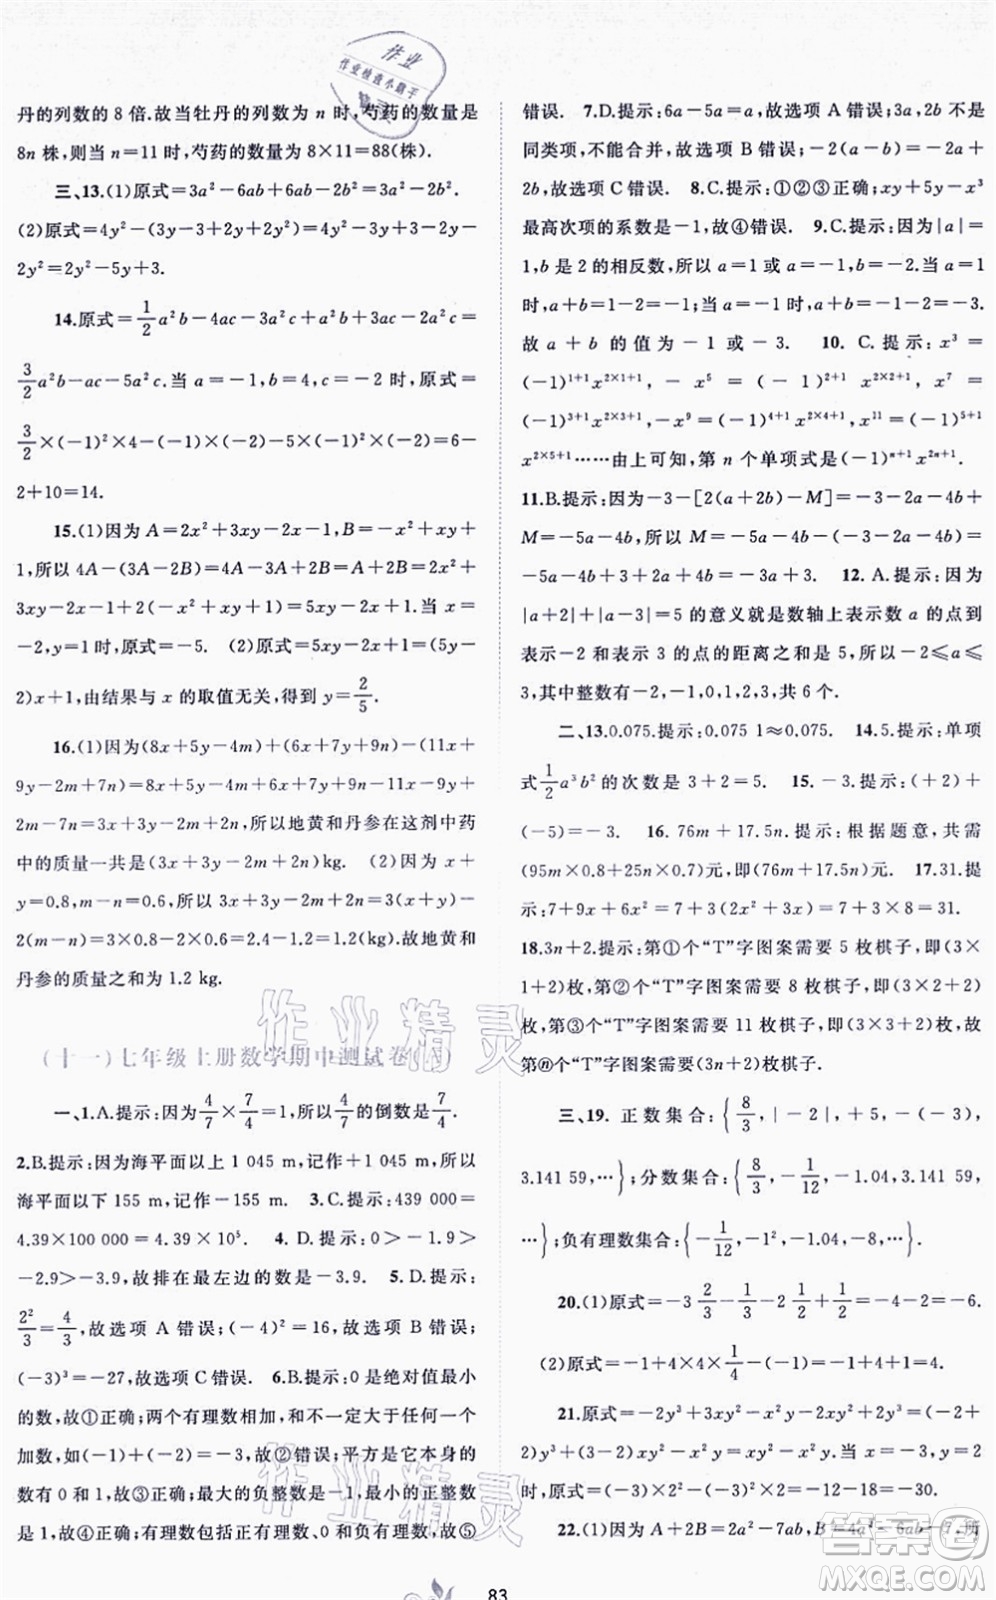 作业
作业检查小助手
丹的列数的 8 倍.故当牡丹的列数为 n 时,芍药的数量是
8n 株,则当 n=11 时,芍药的数量为 8×11=88(株).
三、13.(1)原式=3a²-6ab+6ab-2b²=3a²-2b².
(2)原式=4y²-(3y-3+2y+2y²)=4y²-3y+3-2y-
2y²=2y²-5y+3.
14.原式=1/2a²b-4ac-3a²c+a²b+3ac-2a²c=
3/2a²b-ac-5a²c.当 a=-1,b=4,c=-2 时,原式=
3/2×(-1)²×4-(-1)×(-2)-5×(-1)²×(-2)=6-
2+10=14.
15.(1)因为 A=2x²+3xy-2x-1,B=-x²+xy+
1,所以 4A-(3A-2B)=4A-3A+2B=A+2B=2x²+
3xy-2x-1+2(-x²+xy+1)=5xy-2x+1.当 x=
-2,y=1 时,原式=-5. (2)原式=5xy-2x+1=(5y-
2)x+1,由结果与 x 的取值无关,得到 y=2/5.
16.(1)因为(8x+5y-4m)+(6x+7y+9n)-(11x+
9y-2m+7n)=8x+5y-4m+6x+7y+9n-11x-9y+
2m-7n=3x+3y-2m+2n,所以地黄和丹参在这剂中药
中的质量一共是(3x+3y-2m+2n)kg. (2)因为 x+
y=0.8,m-n=0.6,所以 3x+3y-2m+2n=3(x+y)-
2(m-n)=3×0.8-2×0.6=1.2(kg).故地黄和
丹参的质量之和为 1.2 kg.
(十一)七年级上册数学期中测试卷(A)
一、1.A.提示:因为4/7×7/4=1,所以4/7的倒数是7/4.
2.B.提示:因为海平面以上 1 045 m,记作+1 045 m,所以
海平面以下 155 m,记作-155 m. 3.C.提示:439 000=
4.39×100 000=4.39×10⁵. 4.D.提示:0>-1.9>
-2.9>-3.9,故排在最左边的数是-3.9. 5.D.提示:
2²/3=4/3,故选项 A 错误;(-4)²=16,故选项 B 错误;
(-3)³=-27,故选项 C 错误. 6.B.提示:0 是绝对值最小
的数,故①正确;两个有理数相加,和不一定大于任何一个
加数,如(-1)+(-1)=-2,故②错误;平方是它本身的
数有 0 和 1,故③正确;最大的负整数是-1,最小的正整数
是 1,故④正确;有理数包括正有理数、0 和负有理数,故⑤
错误. 7.D.提示:6a-5a=a,故选项 A 错误;3a,2b 不是
同类项,不能合并,故选项 B 错误;-2(a-b)=-2a+
2b,故选项 C 错误. 8.C.提示:①②③正确;xy+5y-x³
最高次项的系数是-1,故④错误. 9.C.提示:因为|a|=
1,b 是 2 的相反数,所以 a=1 或 a=-1,b=-2.当 a=1
时,a+b=1-2=-1;当 a=-1 时,a+b=-1-2=-3.
故 a+b 的值为-1 或-3. 10. C.提示:x³=
(-1)¹⁺¹x²ˣ¹⁺¹,-x⁵=(-1)²⁺¹x²ˣ²⁺¹,x⁷=
(-1)³⁺¹x²ˣ³⁺¹,-x⁹=(-1)⁴⁺¹x²ˣ⁴⁺¹,x¹¹=(-1)⁵⁺¹
x²ˣ⁵⁺¹……由上可知,第 n 个单项式是(-1)ⁿ⁺¹x²ⁿ⁺¹.
11.B.提示:因为-3-[2(a+2b)-M]=-3-2a-4b+
M=-5a-4b,所以 M=-5a-4b-(-3-2a-4b)=
-5a-4b+3+2a+4b=-3a+3. 12.A.提示:因为
|a+2|+|a-3|=5 的意义就是数轴上表示数 a 的点到
表示-2 和表示 3 的点的距离之和为 5,所以-2≤a≤
3,其中整数有-2,-1,0,1,2,3,共 6 个.
二、13.0.075.提示:0.075 1≈0.075. 14.5.提示:单项
式1/2a³b²的次数是 3+2=5. 15.-3.提示:(+2)+
(-5)=-3. 16.76m+17.5n.提示:根据题意,共需
(95m×0.8+25n×0.7)元,即(76m+17.5n)元. 17.31.提
示:7+9x+6y=7+3(2y+3x)=7+3×8=31.
18.3n+2.提示:第①个“T”字图案需要 5 枚棋子,即(3×
1+2)枚,第②个“T”字图案需要 8 枚棋子,即(3×2+2)
枚,第③个“T”字图案需要 11 枚棋子,即(3×3+2)枚,故
第ⓝ个“T”字图案需要(3n+2)枚棋子.
三、19. 正数集合:{8/3,|-2|,+5,-(-3),
3.141 59,…};分数集合:{8/3,-1/12,-1.04,3.141 59,
…};负有理数集合:{-1/12,-1²,-1.04,-8,…}.
20.(1)原式=-3 2/3-1/3-2 1/2+1/2=-4-2=-6.
(2)原式=-1+4×4×1/4=-1+4+1=4.
21.原式=-2y³+3xy²-x²y-2xy²+2y³=(-2+
2)y³+(3-2)xy²-x²y=xy²-x²y.当 x=-3,y=2
时,原式=(-3)×2²-(-3)²×2=-12-18=-30.
22.(1)因为 A+2B=2a²-7ab,B=4a²-6ab-7,所
作业精灵
作业精灵
答案圈
MXQE.COM
83